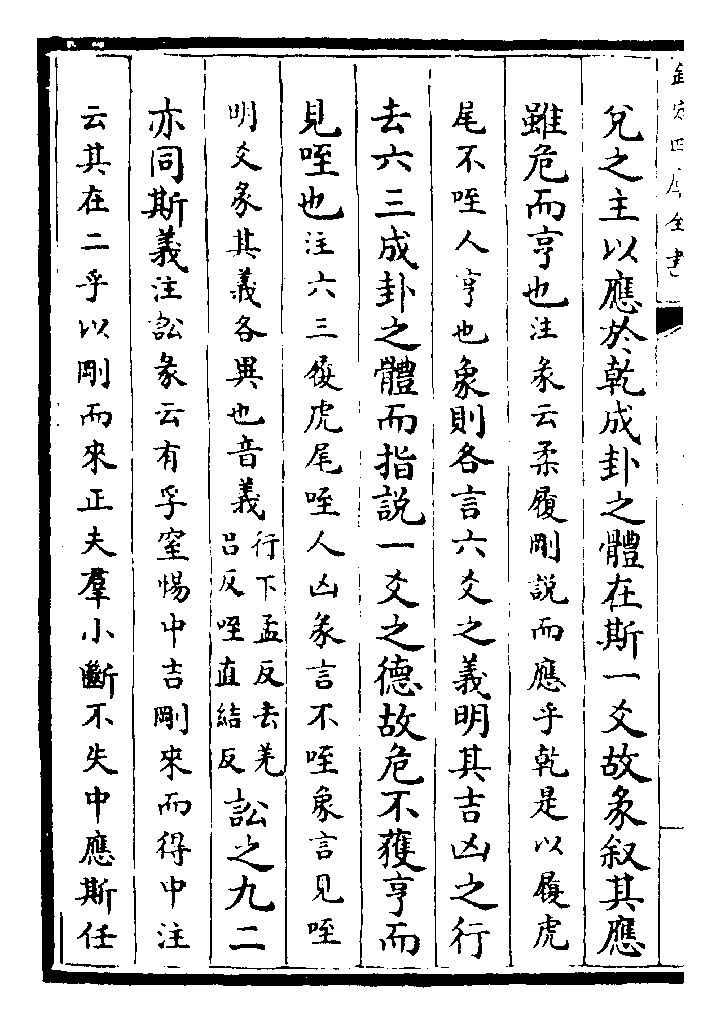 欽定四庫全書
兌之主以應於乾成卦之體在斯一爻故彖叙其應
雖危而亨也注彖云柔履剛説而應乎乾是以履虎
尾不咥人亨也象則各言六爻之義明其吉凶之行
去六三成卦之體而指説一爻之德故危不獲亨而
見咥也注六三履虎尾咥人凶彖言不咥象言見咥
明爻彖其義各異也音義行下孟反去羌呂反咥直結反訟之九二
亦同斯義注訟彖云有孚窒惕中吉剛來而得中注
云其在二乎以剛而來正夫羣小斷不失中應斯任